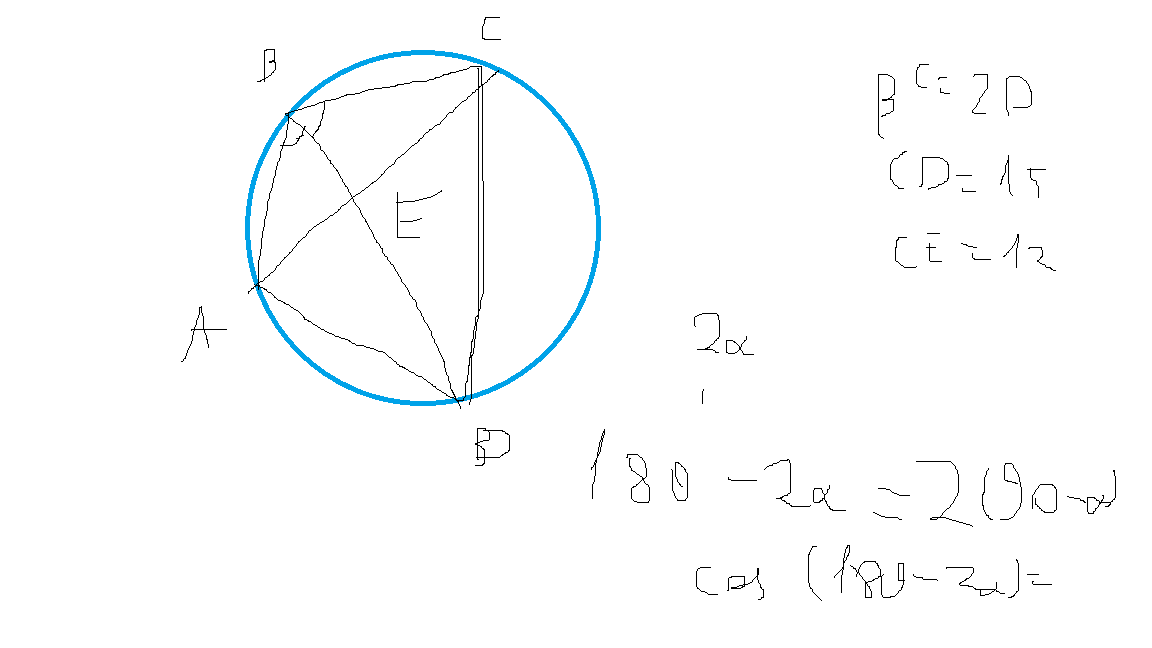 C
B
BC=2D
CD=15
E
CE=12
A
2α
D
180-2α=2(90-α)
cos(180-2α)=